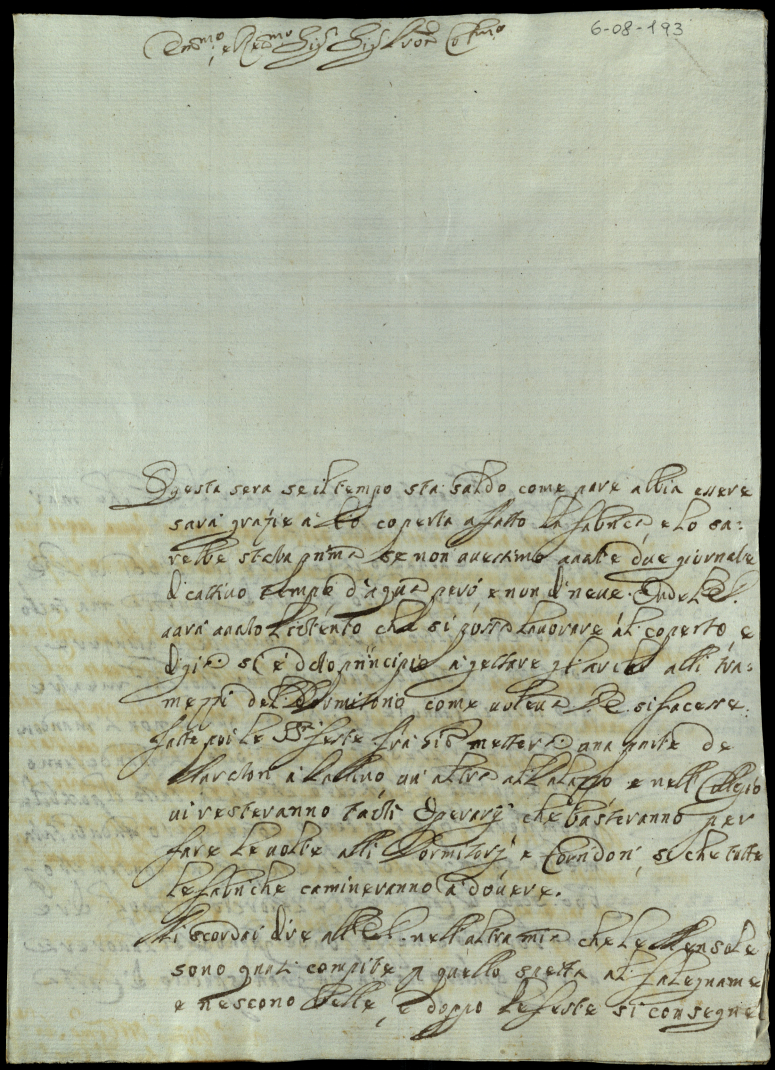 6-08-193
Em.mo e Re.mo Sig.r Sig.r Pron Col.mo
Questa sera se il tempo sta saldo come pare abbia essere
sarà grazie a Dio coperta affatto la fabrica e lo sa:
rebbe stata prima se non avessimo avute due giornate
di cattivo tempo d'aqua però e non di neve. Onde V.E.
avrà avuto l'intento che si possa lavorare al coperto e
di già si è dato principio a gettare gl'archi alli tra:
mezzi del Dormitorio come voleva V.E. si facesse.
fatte poi le SS.e feste fra Biò metterà una parte de
Marcloni a l'attivo un'altra al Palazzo e nell Collegio
vi resteranno tanti Operarij che basteranno per
fare le volte alli Dormitorj e Corridori, si che tutte
le fabriche camineranno a dovere.
Mi scordai dire all'E.V. nell'altra mia che le Mensole
sono quasi compite p quello spetta al falegname
e riescono belle, e doppo le feste si consegne